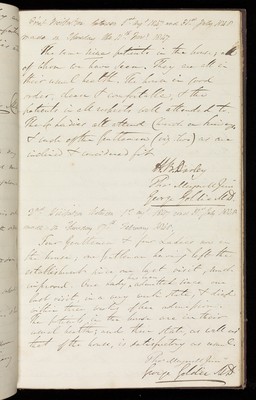 First Visitation between 1st Augt 1857 and 31st July 1858
made on Thursday the 12th Novr 1857
There are nine patients in the house, all
of whom we have seen. They are all in
their usual health. The house in good
order, clean & comfortable, & the
patients in all respects well attended to
The ladies all attend Church on Sundays
& such of the Gentlemen (viz two) as are
inclined & considered fit.
Geoe Golden MD
2nd Visitation between 1st Augt 1857 and 31st July 1858
made on 17th February 1858.
Four Gentlemen & four Ladies are in
the house; one gentleman having left the
establishment since our last visit, much
improved. One lady, admitted since our
last visit, in a very weak state, & died
within three weeks of her admission.
The patients in the house are in their
usual health; and their state, as well as
that of the house, is satisfactory as usual.
George Golden MD